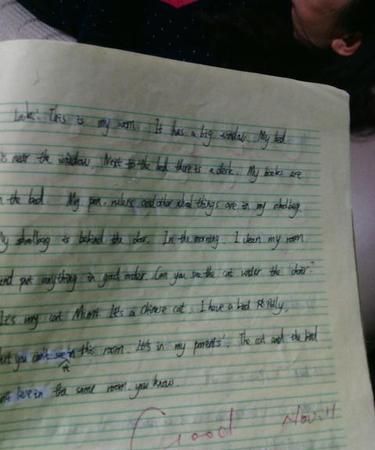 Look! This is my room. It has a big window. My bed
is near the window. Next to the bed there is a desk. My books are
n the bed. My pen, rulers and other things are in my
My is behind the door. In the morning, I clean my room
and put anything in good Can you see the cat under the "chair"
It's my cat Mimi. It's a Chinese cat. I have a bed
but you can't see in this room. It's in my parents'. The cat and the bed
in the same room, you know.
Good Nov.11